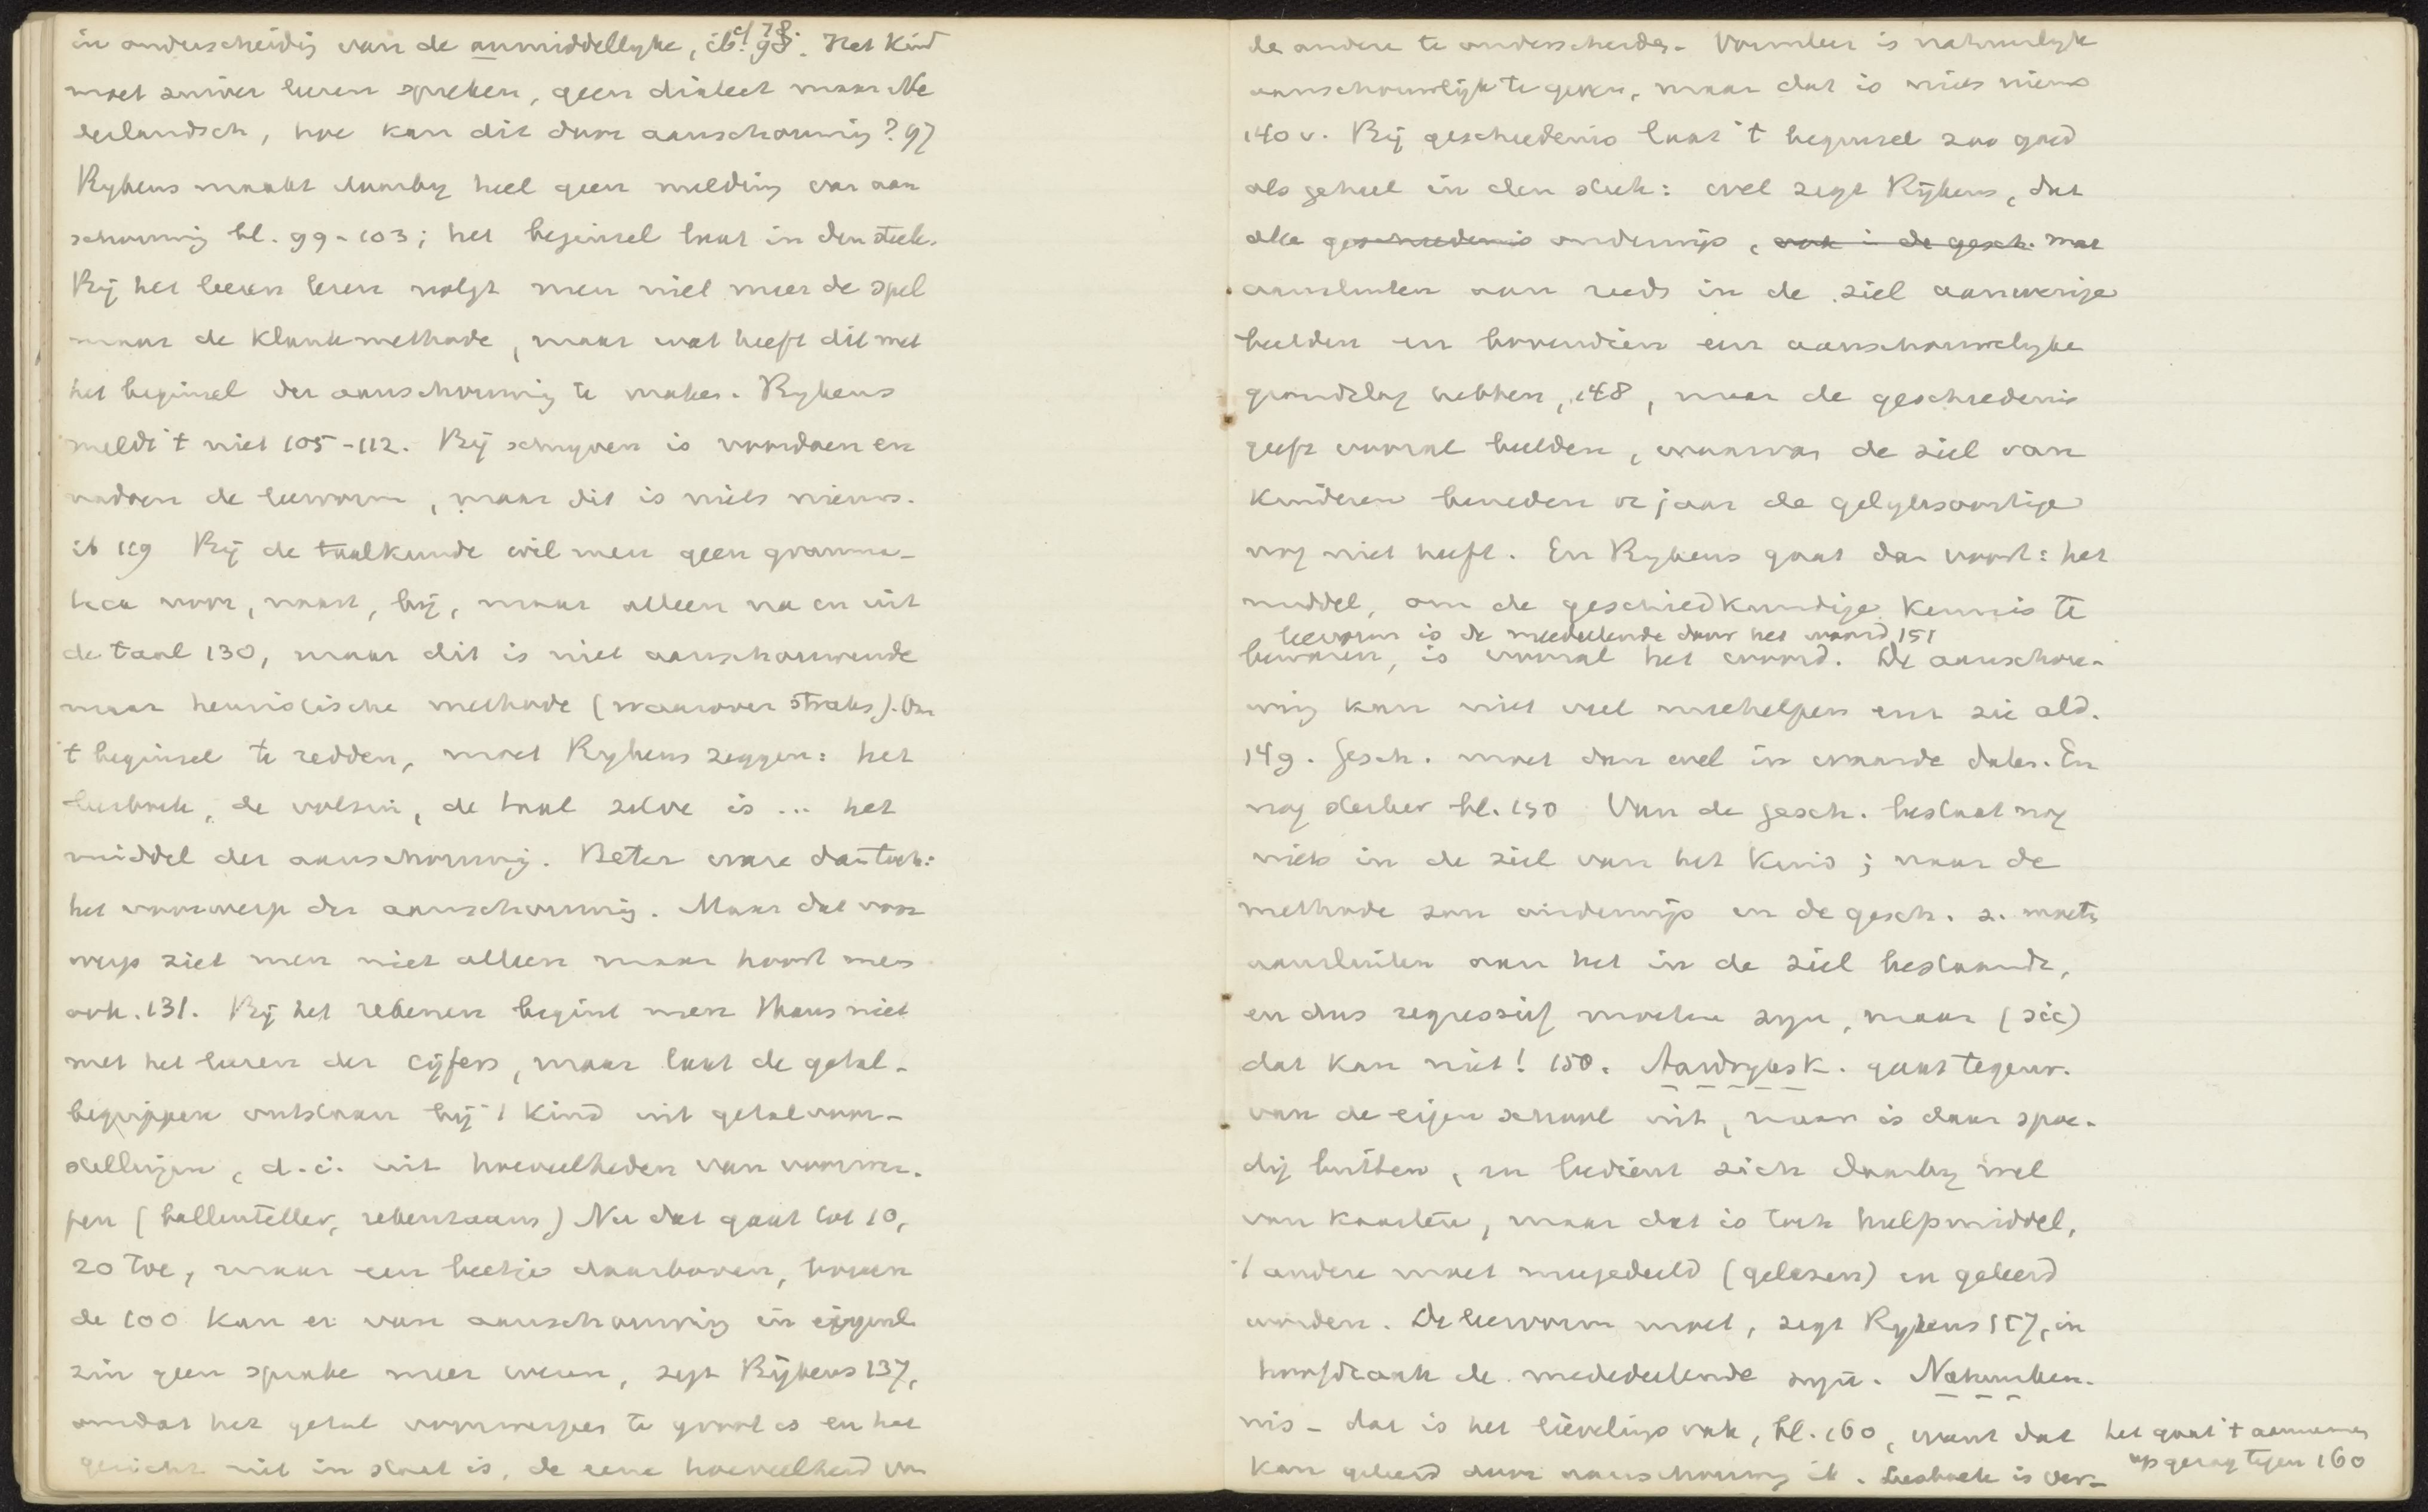 in onderscheidig van de onmiddellyke, ib. 98. cf 78. Het Kind
moet zuiver leeren spreken, geen dialect maar Ne
derlandsch, hoe kan dit door aanschouwing? 97
Rykens maakt daarby heel geen melding van aan
schouwing bl. 99-103; het beginsel laat in den steek.
Bij het leeren lezen volgt men niet meer de spel
maar de Klankmethode, maar wat heeft dit met
het beginsel der aanschouwing te maken. Rykens
meldt 't niet 105-112. Bij schryven is voordoen en
nadoen de leervorm, maar dit is niets nieuws.
ib 119 Bij de taalkunde wil men geen gramma-
tica voor, naast, bij, maar alleen na en uit
de taal 130, maar dit is niet aanschouwende
maar heuristische methode (waarover straks). Om
't beginsel te redden, moet Rykens zeggen: het
leesboek, de volzin, de taal zelve is ... het
middel der aanschouwing. Beter ware dan toch:
het voorwerp der aanschouwing. Maar dat voor
werp ziet men niet alleen maar hoort men
ook. 131. Bij het rekenen begint men thans niet
met het leeren der cijfers, maar laat de getal-
begrippen ontstaan bij 't kind uit getalvoor-
stellingen, d.i. uit hoeveelheden van voorwer-
pen (ballenteller, rekenraam) Nu dat gaat tot 10,
20 toe, maar een beetje daarboven, boven
de 100 kan er van aanschouwing in eigenl.
zin geen sprake meer wezen, zegt Rijkens 137,
omdat het getal voorwerpen te groot is en het
gezicht niet in staat is, de eene hoeveelheid van
de andere te onderscheiden. Vormleer is natuurlyk
aanschouwlijk te geven, maar dat is niets nieuws
140 v. Bij geschiedenis laat 't beginsel zoo goed
als geheel in den steek: wel zegt Rijkens, dat
alle geschiedenis onderwijs, ook i de gesch. moet
aansluiten aan reeds in de ziel aanwezige
beelden en bovendien een aanschouwelyke
grondslag hebben, 148, maar de geschiedenis
geeft vooral beelden, waarvan de ziel van
kinderen beneden 12 jaar de gelyksoortige
nog niet heeft. En Rykens gaat dan voort: het
middel, om de geschiedkundige kennis te
leervorm is de mededeelende door het woord 151
bewaren, is vooral het woord. De aanschou-
wing kan niet veel meehelpen enz zie ald.
149. Gesch. moet dan wel in waarde dalen. En
nog sterker bl. 150 Van de gesch. bestaat nog
niets in de ziel van het Kind; naar de
methode zou onderwijs in de gesch. z. moeten
aansluiten aan het in de ziel bestaande,
en dus regressief moeten zyn, maar (sic)
dat kan niet! 150. Aardryksk. gaat tegenw.
van de eigen school uit, maar is daar spoe-
dig buiten, en bedient zich daarby wel
van kaarten, maar dat is toch hulpmiddel,
't andere moet meegedeeld (gelezen) en geleerd
worden. De leervorm moet, zegt Rykens 157, in
hoofdzaak de mededeelende zyn. Natuurken-
nis - dat is het lievelings vak, bl. 160, want dat
kan geleerd door aanschouwing ib. Leesboek is ver-
het gaat 't aannemen
op gezag tegen 160